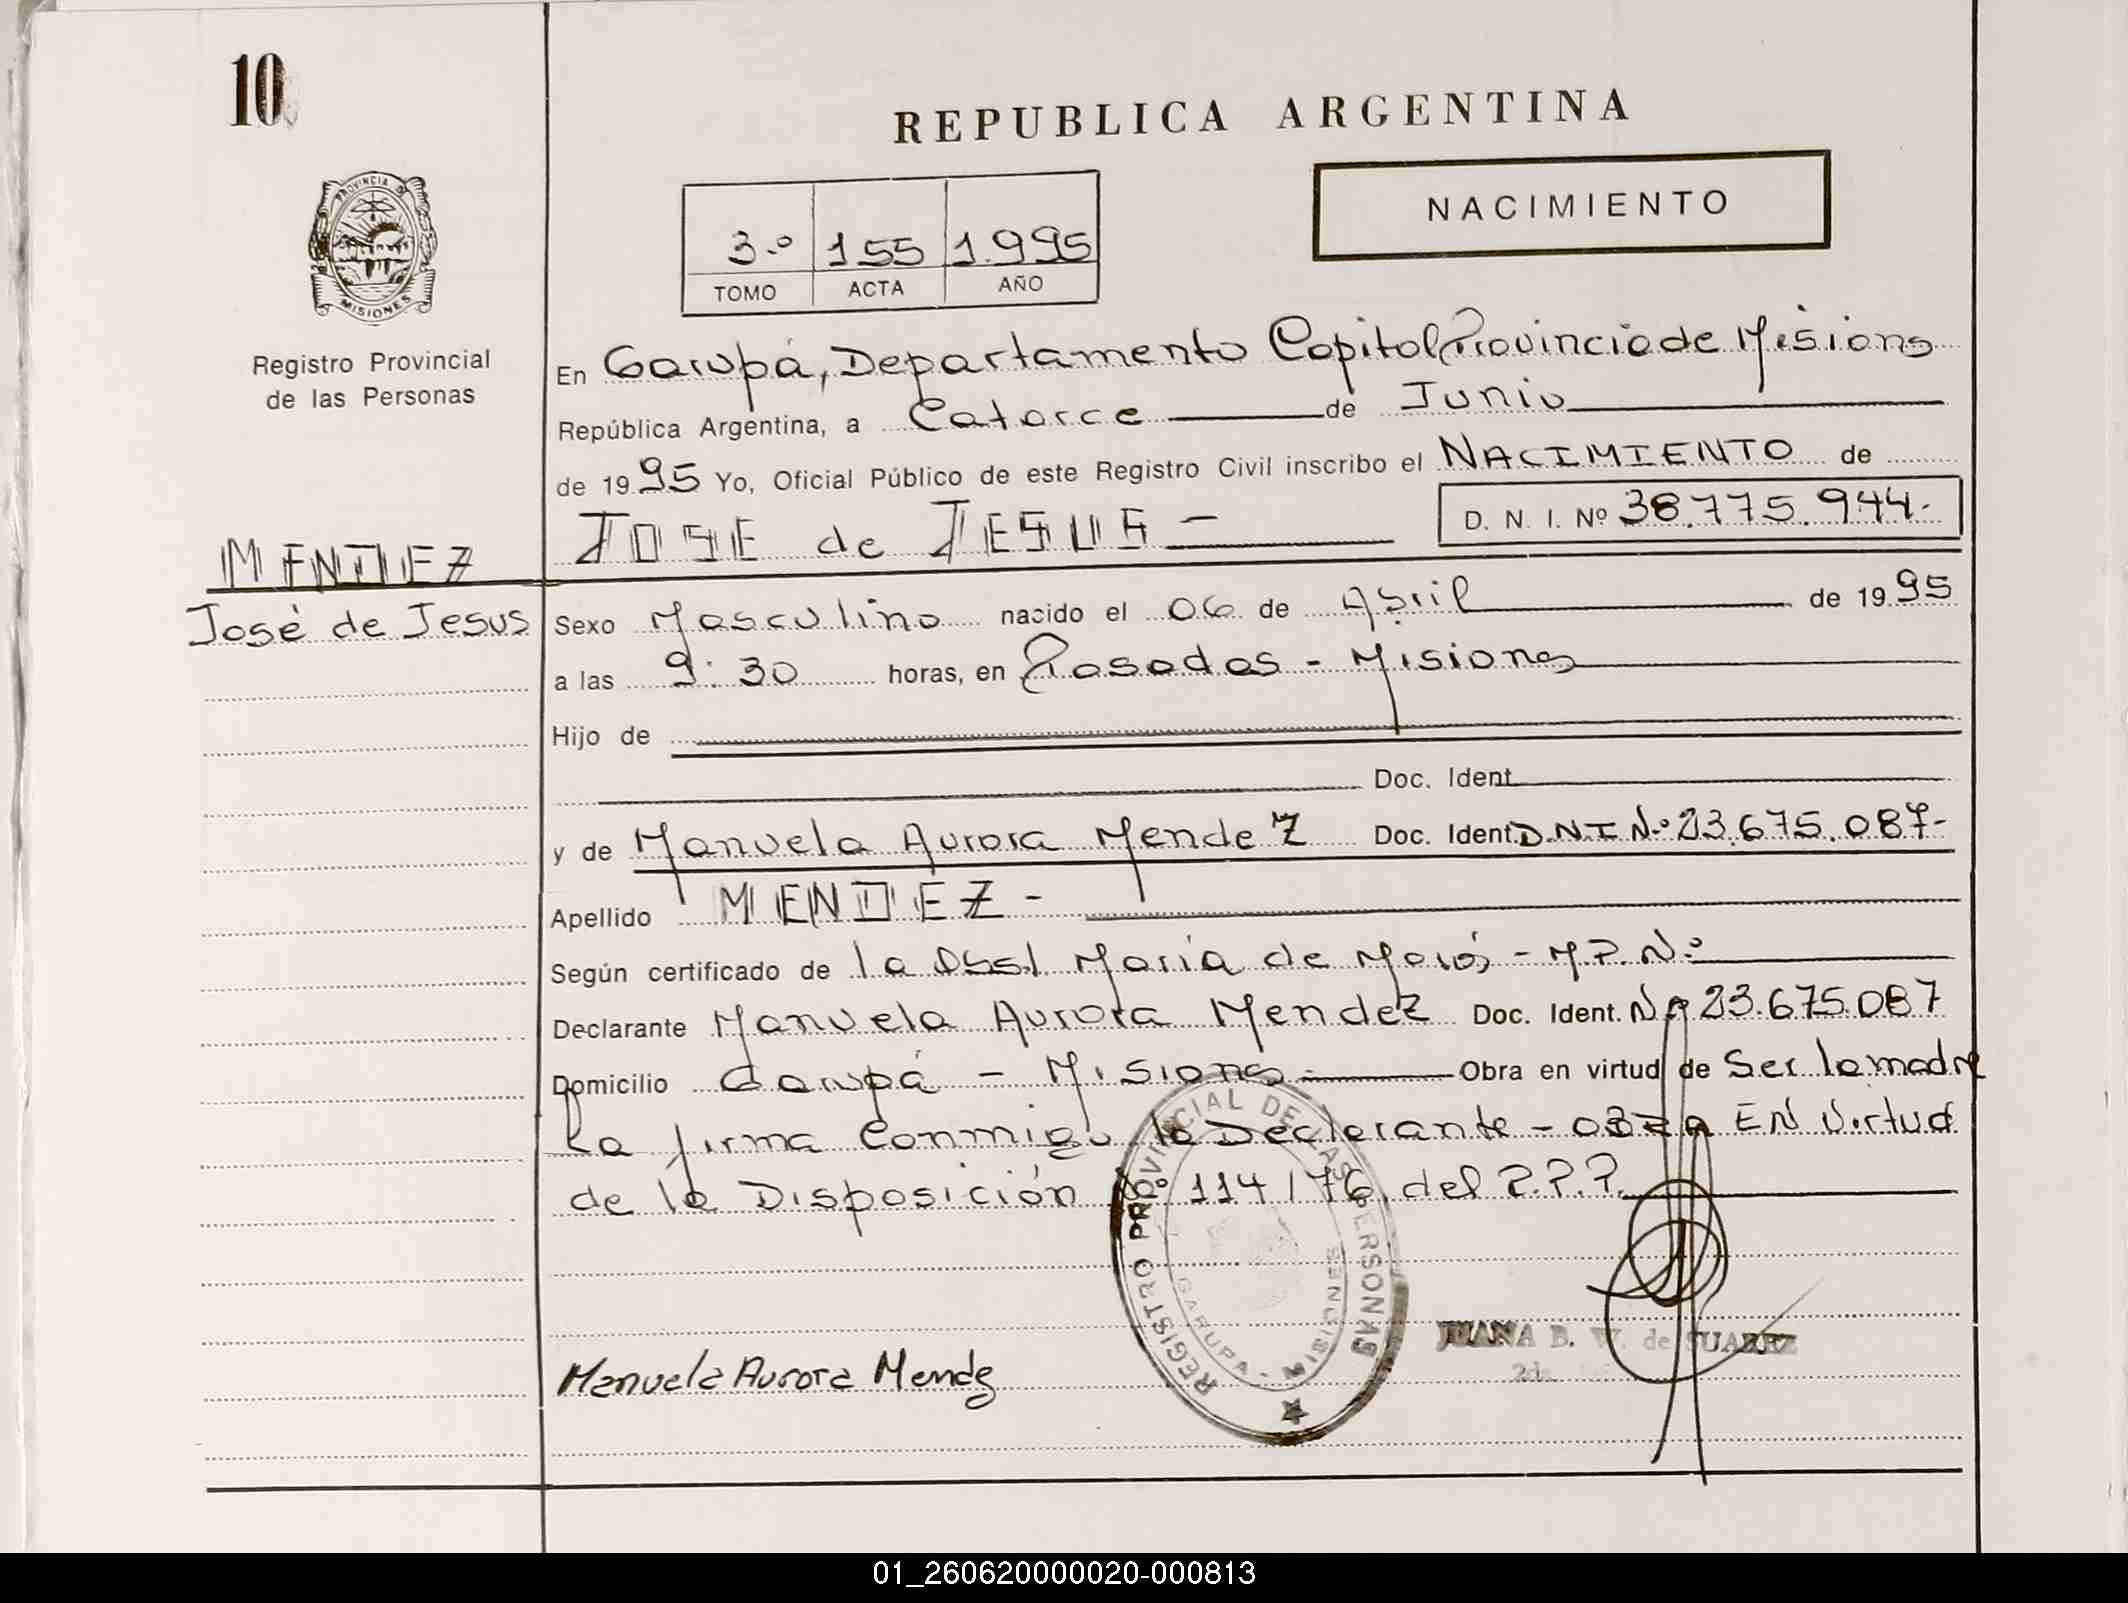 10
REPUBLICA ARGENTINA
PROVINCIA DE
MISIONES
NACIMIENTO
3.º 155 1.995
TOMO ACTA AÑO
Registro Provincial
de las Personas
En Garupá, Departamento Capital Provincia de Misiones
República Argentina, a Catorce de Junio
de 1995 Yo, Oficial Público de este Registro Civil inscribo el NACIMIENTO de
JOSE de JESUS - D. N. I. Nº 38.775.944.-
MENDEZ
José de Jesus
Sexo Masculino nacido el 06 de Abril de 1995
a las 9:30 horas, en Posadas - Misiones
Hijo de
Doc. Ident.
y de Manuela Aurora Mendez Doc. Ident. D.N.I Nº 23.675.087-
Apellido MENDEZ -
Según certificado de la Obst María de - M.P.N.º
Declarante Manuela Aurora Mendez Doc. Ident. Nº 23.675.087
Domicilio Garupá - Misiones - Obra en virtud de Ser la madre
La firma Conmigo la Declarante - OBRA EN Virtud
de la Disposición Nº 114/76, del P.P.P.
REGISTRO PROVINCIAL DE LAS PERSONAS
GARUPA - MISIONES
JUANA B. W. de SUAREZ
Manuela Aurora Mendez
01_260620000020-000813